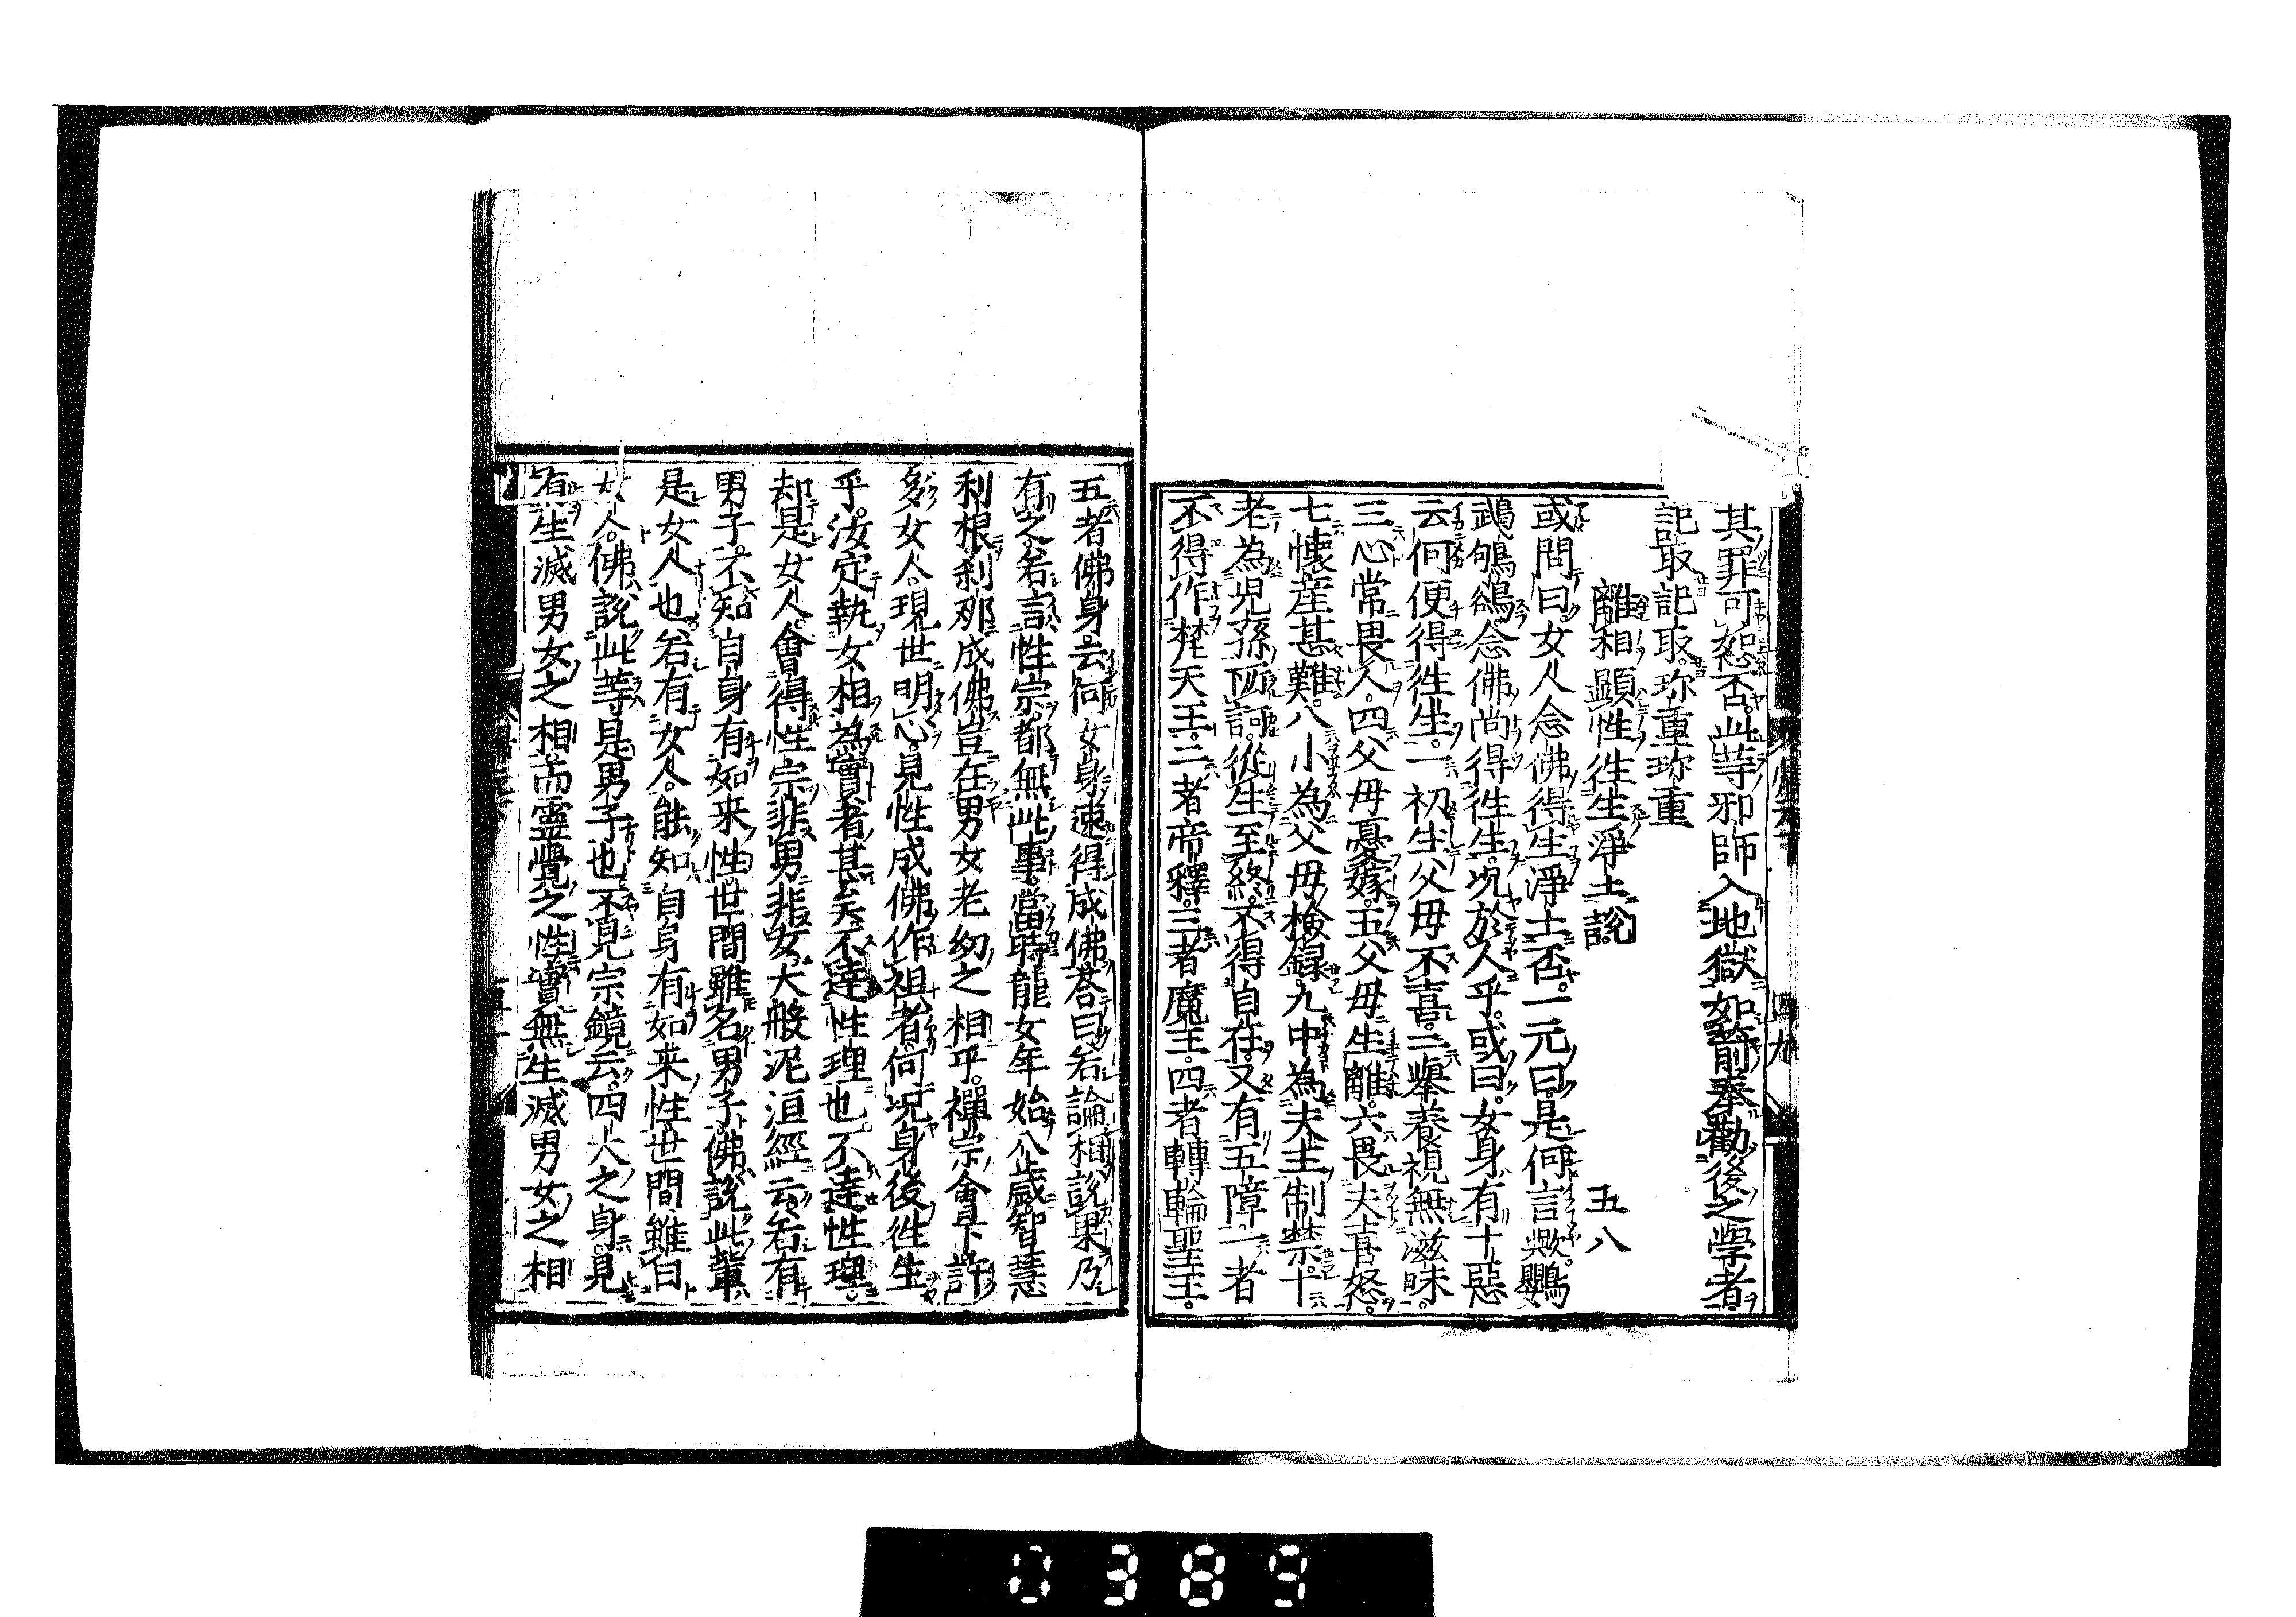 其罪可恕否此等邪師入地獄如箭奉勸後之學者
記取記取珍重珍重
離相顯性往生淨土說 五八
或問曰女人念佛得生淨土否一元曰是何言歟鸚
鵡鴝鵒念佛尚得徃生况於人乎或曰女身有十惡
云何便得徃生一初生父母不喜二舉養視無滋味
三心常畏人四父母憂嫁五父母生離六畏夫喜怒
七懐産甚難八小為父母檢錄九中為夫主制禁十
老為児孫所訶從生至終不得自在又有五障一者
不得作梵天王二者帝釋三者魔王四者轉輪聖王
五者佛身云何女身速得成佛荅曰若論相說果乃
有之若談性宗都無此事當時龍女年始八歲智慧
利根刹那成佛豈在男女老幼之相乎禪宗會下許
多女人現世明心見性成佛作祖者何况身後徃生
乎汝定執女相為實者甚矣不達性理也不達性理
却是女人會得性宗非男非女大般泥洹經云若有
男子不知自身有如来性世間雖名男子佛說此輩
是女人也若有女人能知自身有如来性世間雖曰
女人佛說此等是男子也不見宗鏡云四大之身見
有生滅男女之相而霊覺之性實無生滅男女之相
四九
0389